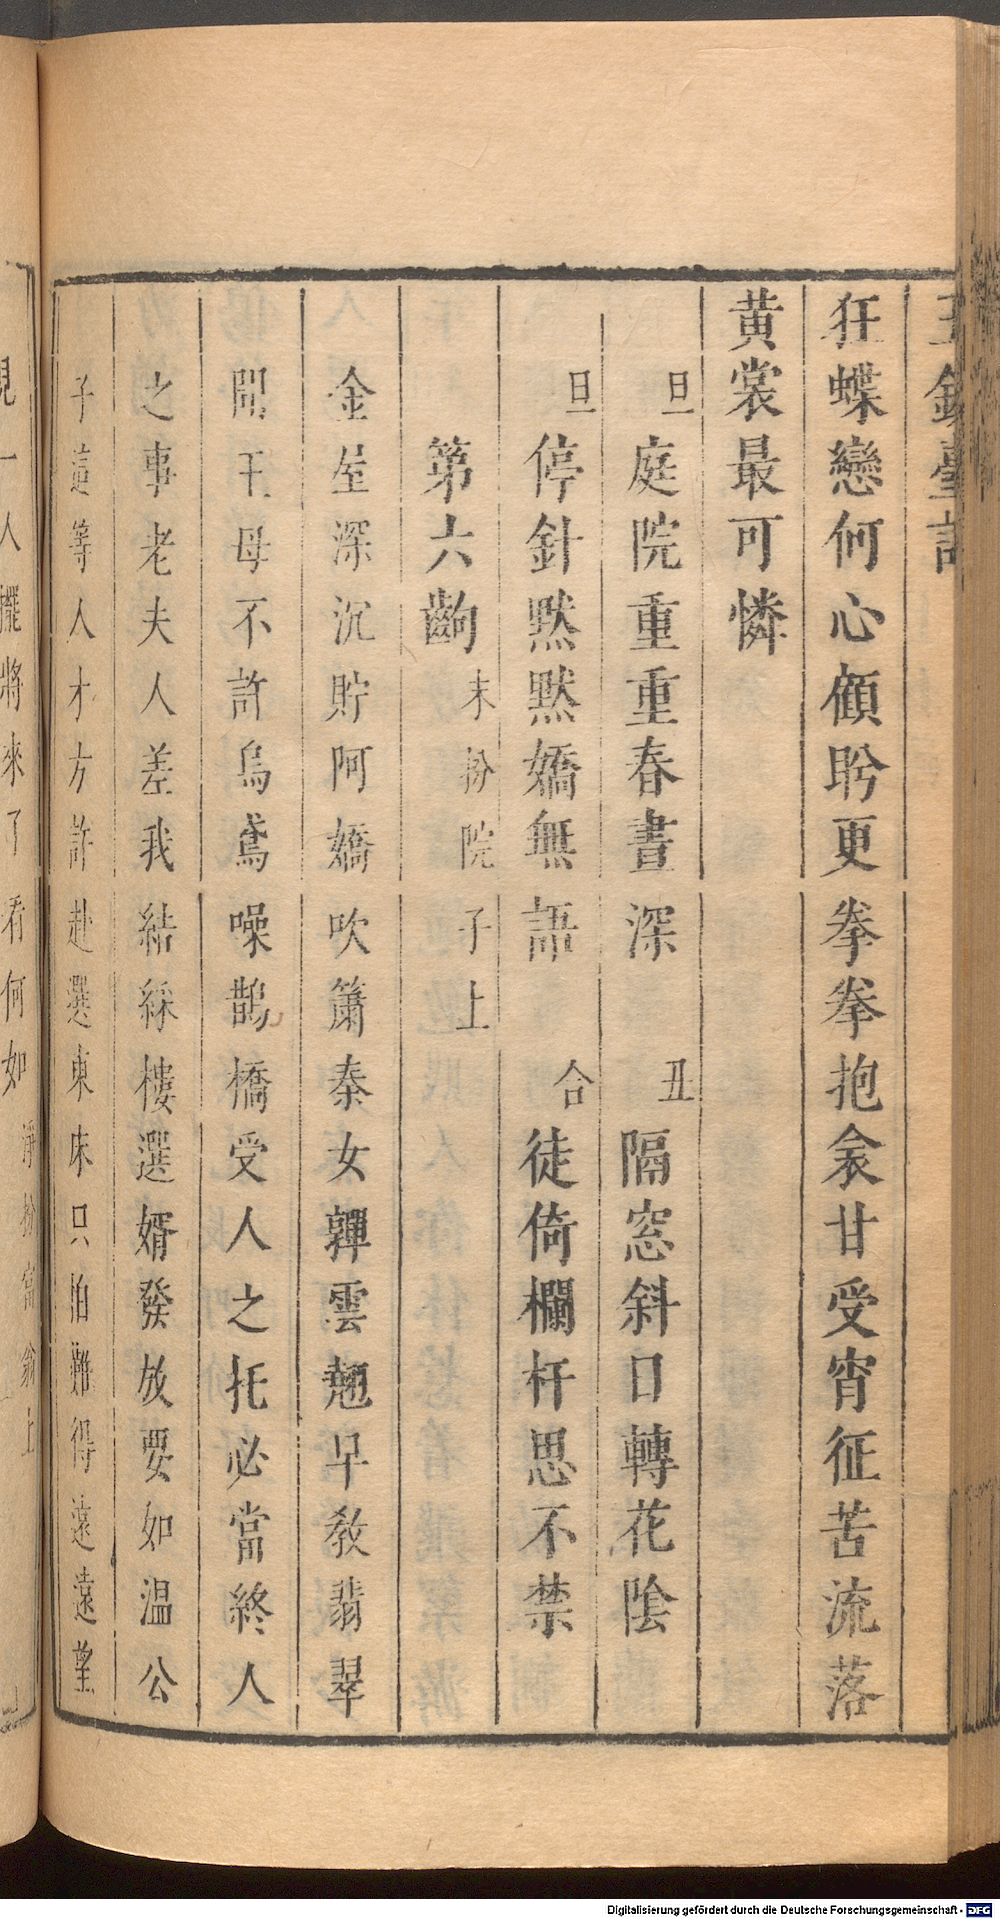 玉鏡臺記
狂蝶戀何心顧盻更拳拳抱衾甘受宵征苦流落
黃裳最可憐
旦庭院重重春晝深 丑隔窓斜日轉花陰
旦停針默默嬌無語 合徒倚欄杆思不禁
第六齣末扮院子上
金屋深沉貯阿嬌吹簫秦女嚲雲翹早教翡翠
開王母不許烏鳶噪鵲橋受人之托必當終人
之事老夫人差我結綵樓選婿發放要如温公
子這等人才方許赴選東床只怕難得遠遠望
見一人擺將來了看何如淨扮富翁上
Digitalisierung gefördert durch die Deutsche Forschungsgemeinschaft - DFG